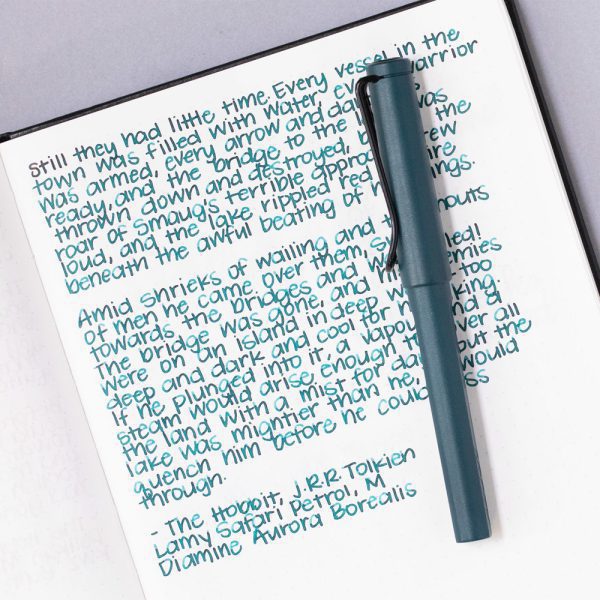 Still they had little time. Every vessel in the
town was filled with water, every warrior
was armed, every arrow and dart was
ready, and the bridge to the land was
thrown down and destroyed, before the
roar of Smaug's terrible approach grew
loud, and the lake rippled red as fire
beneath the awful beating of his wings.
Amid shrieks of wailing and the shouts
of men he came over them, swept
towards the bridges and was foiled!
The bridge was gone, and his enemies
were on an island in deep water-too
deep and dark and cool for his liking.
If he plunged into it, a vapour and a
steam would arise enough to cover all
the land with a mist for days; but the
lake was mightier than he, it would
quench him before he could pass
through.
- The Hobbit, J.R.R. Tolkien
Lamy Safari Petrol, M
Diamine Aurora Borealis